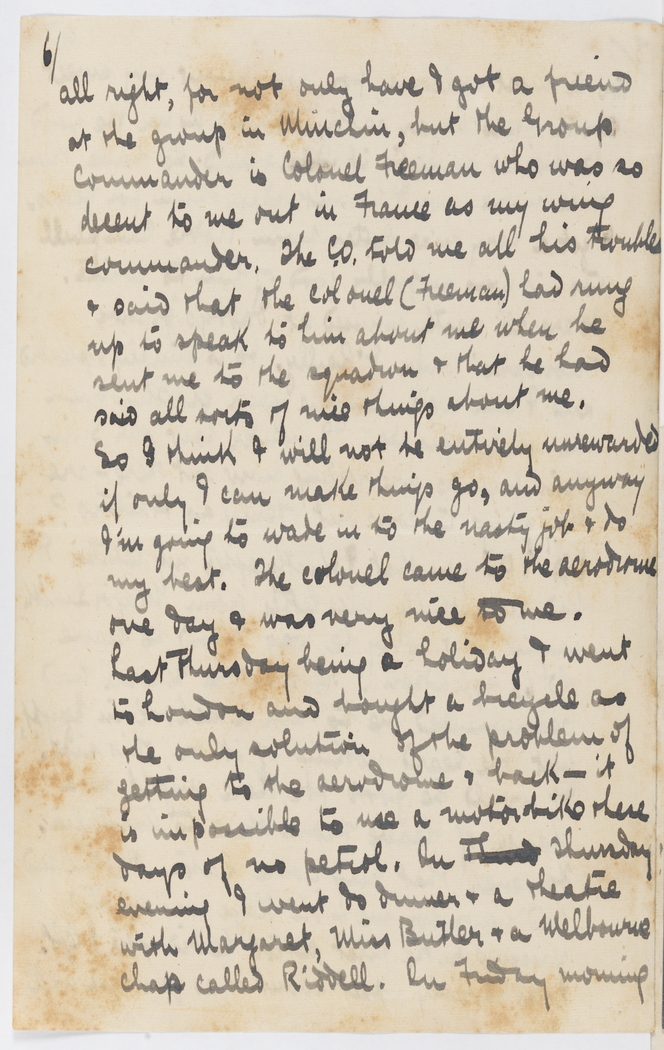 6/
all right, for not only have I got a friend
at the group in Minchin, but the Group
Commander is Colonel Freeman who was so
decent to me out in France as my wing
commander. The C.O. told me all his troubles
& said that the colonel (Freeman) had rung
up to speak to him about me when he
sent me to the squadron & that he had
said all sorts of nice things about me.
So I think I will not be entirely unrewarded
if only I can make things go, and anyway
I'm going to wade in to the nasty job & do
my best. The colonel came to the aerodrome
one day & was very nice to me.
Last Thursday being a holiday I went
to London and bought a bicycle as
the only solution of the problem of
getting to the aerodrome & back — it
is impossible to use a motor-bike these
days of no petrol. On Thursday
evening I went to dinner & a theatre
with Margaret, Miss Butler & a Melbourne
chap called Riddell. On Friday morning